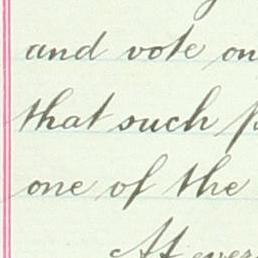 and vote on
that such
one of the
At every